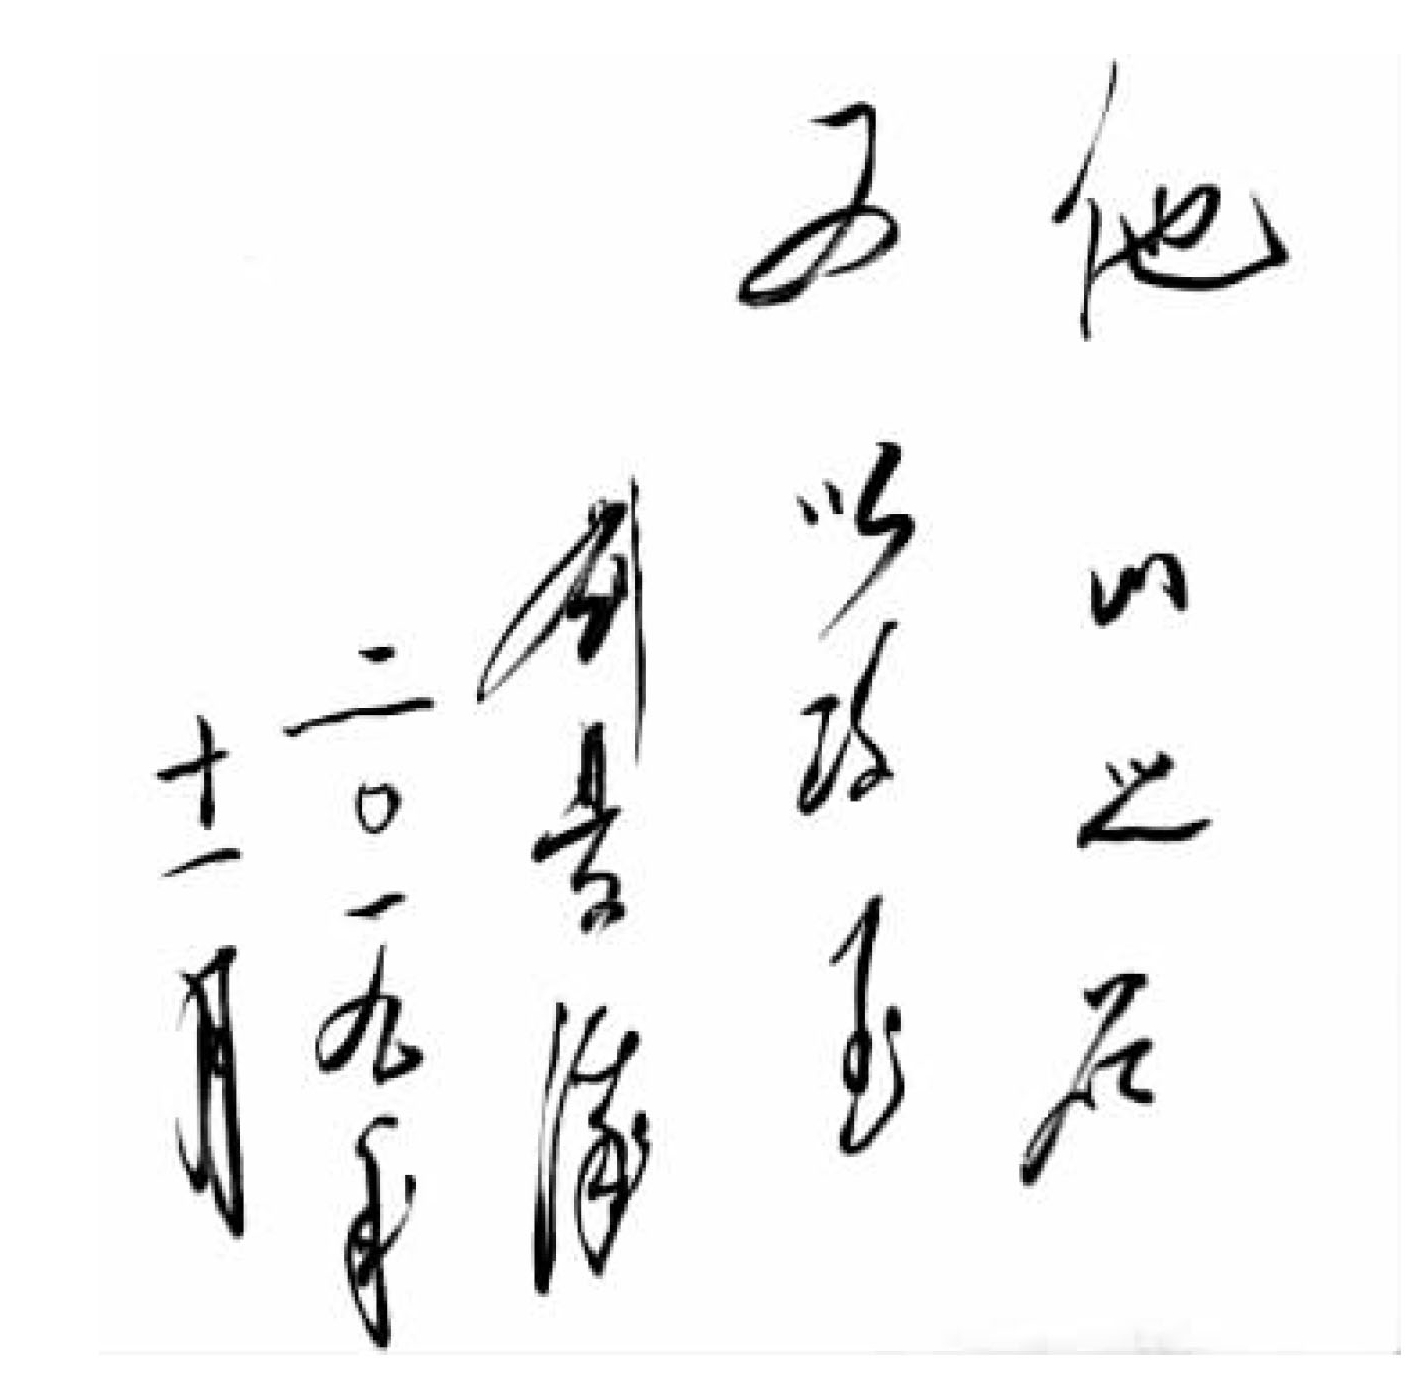 他山之石
可以攻玉
刘
二〇一九年
十一月